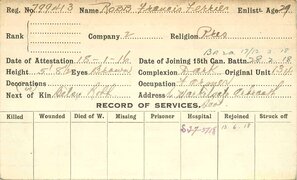 Reg. No. 799413 Name ROBB Francis Ferrier Enlistt. Age 29
Rank Company 2 Religion Pres
Date of Attestation 18-1-16 Date of Joining 15th Can. Battn. 28.2.18
Height 5' 8½ Eyes Brown Complexion Dark Original Unit 134
Decorations Occupation Farmer
Next of Kin Helen Robb Address Arbroath
Scot
RECORD OF SERVICES.
Killed Wounded Died of W. Missing Prisoner Hospital Rejoined Struck off